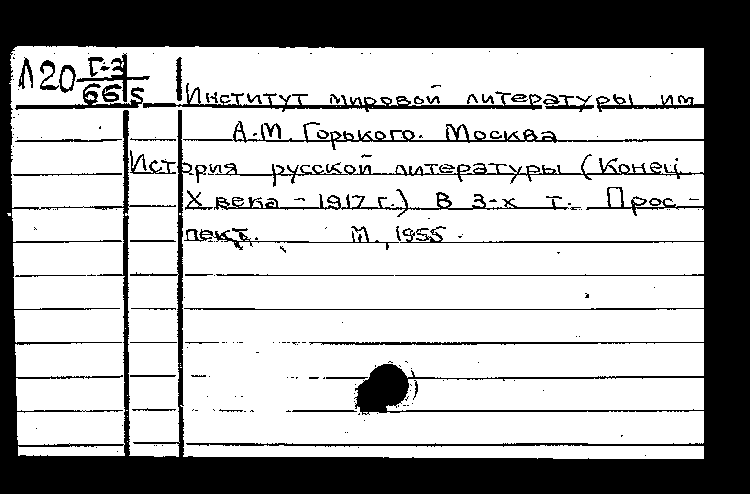 Л20 Г-3
665
Институт мировой литературы им
А.М. Горького. Москва
История русской литературы (Конец
X века - 1917 г.) В 3-х т. Прос-
пект. М., 1955.